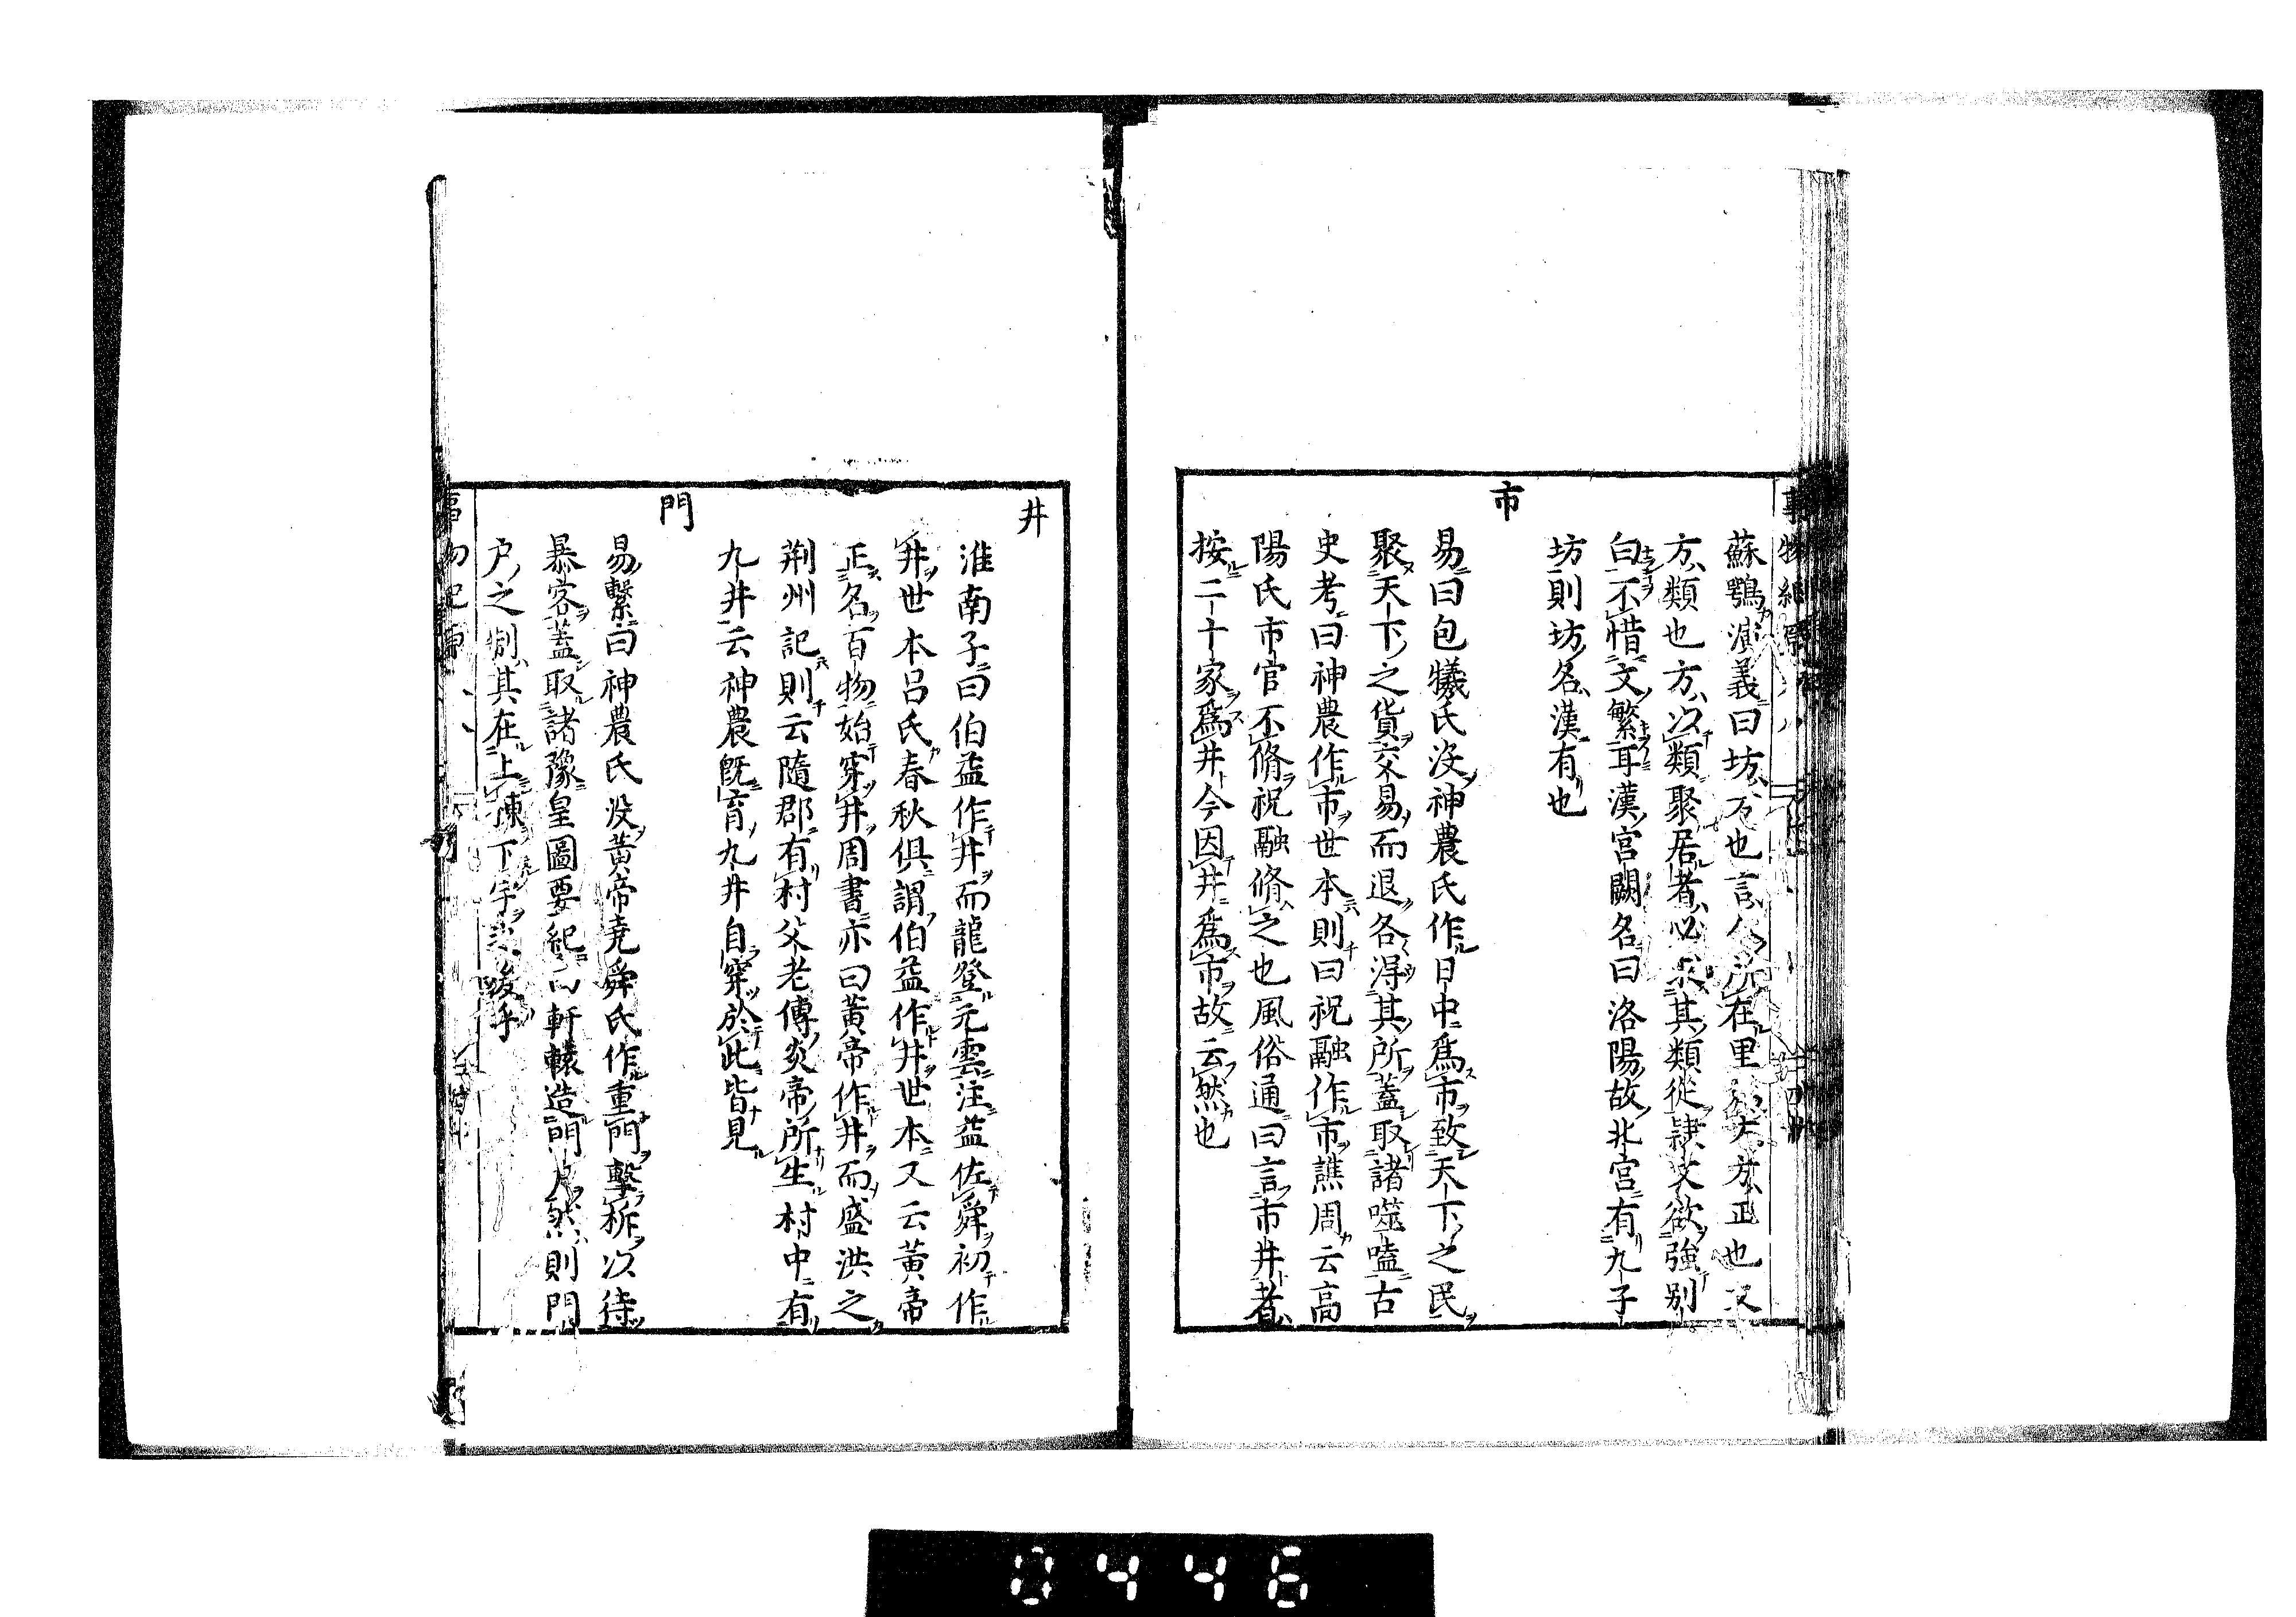 蘇鶚演義曰坊方也言人所在里爲方方正也又
方類也方以類聚居者必求其類從隷文欲強別
白不惜文繁耳漢宮闕名曰洛陽故北宮有九子
坊則坊名漢有也
市
易曰包犧氏没神農氏作日中爲市致天下之民
聚天下之貨交易而退各得其所蓋取諸噬嗑古
史考曰神農作市世本則曰祝融作市譙周云高
陽氏市官不脩祝融脩之也風俗通曰言市井者
按二十家爲井今因井爲市故云然也
井
淮南子曰伯益作井而龍登元雲注益佐舜初作
井世本呂氏春秋俱謂伯益作井世本又云黃帝
正名百物始穿井周書亦曰黃帝作井而盛洪之
荆州記則云隨郡有村父老傳炎帝所生村中有
九井云神農既育九井自穿於此皆見
門
易繫曰神農氏没黃帝堯舜氏作重門擊柝以待
暴客蓋取諸豫皇圖要紀曰軒轅造門户然則門
户之制其在上棟下宇之後乎
0446